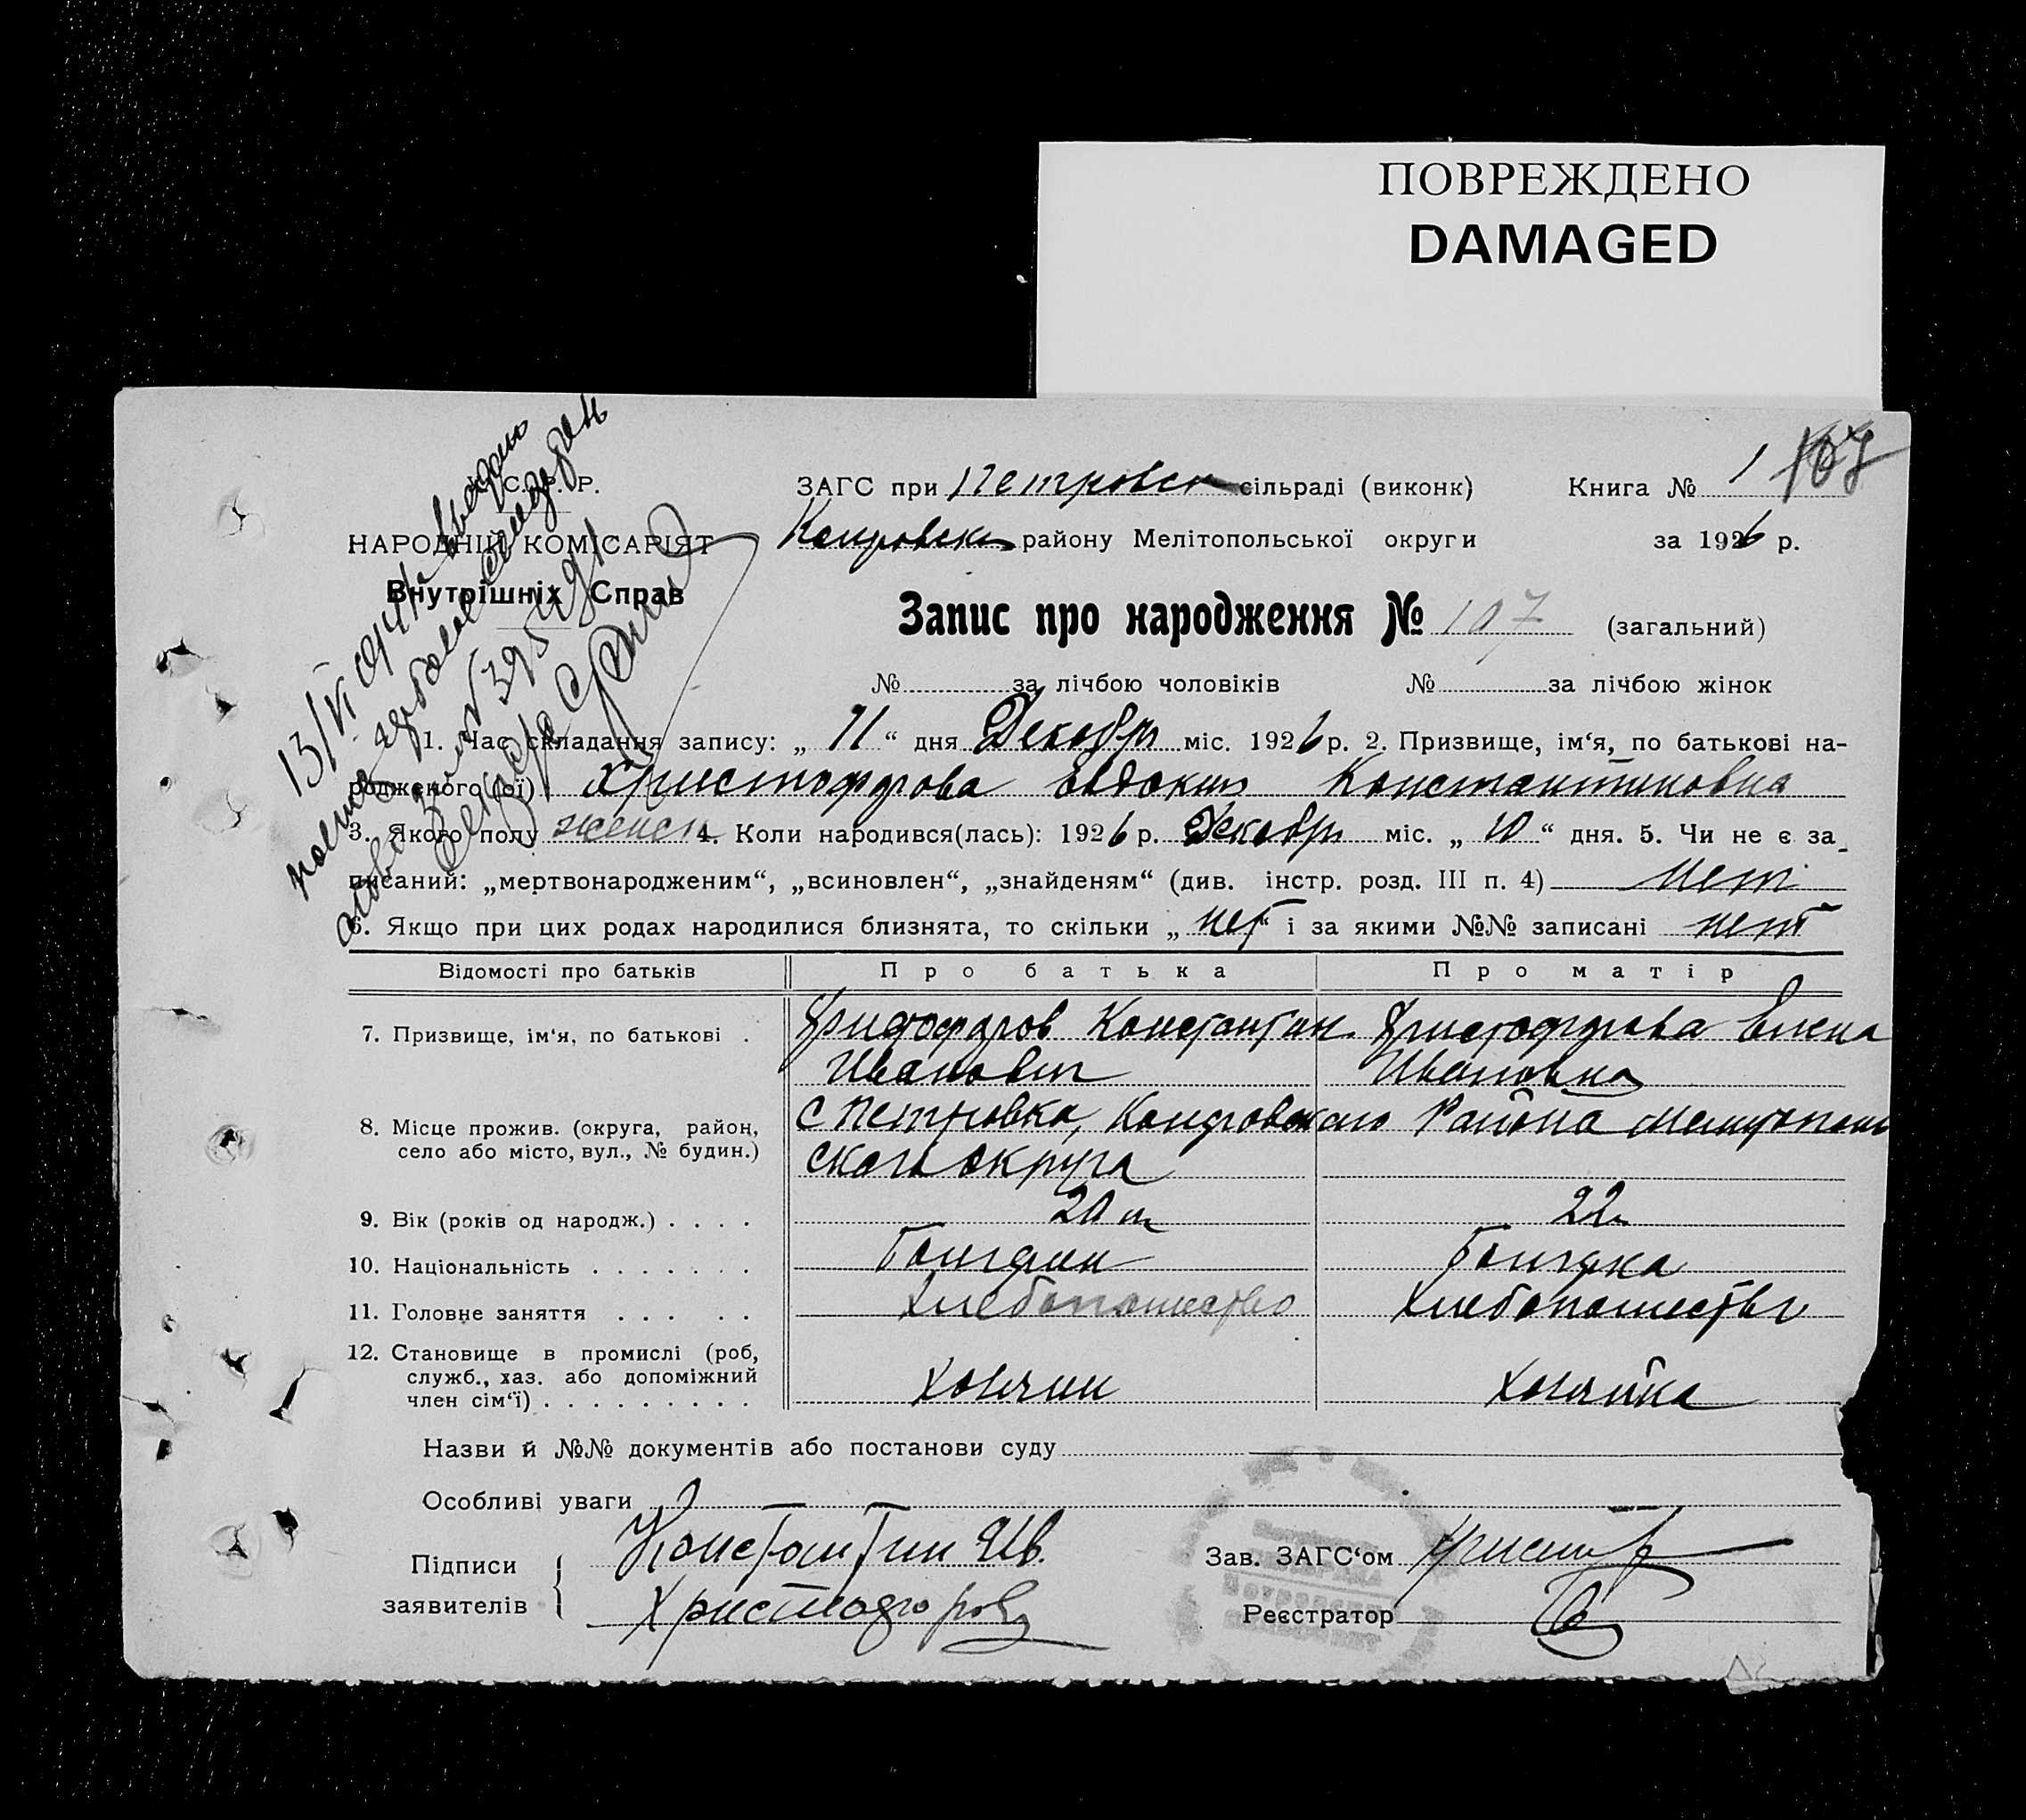 ПОВРЕЖДЕНО
DAMAGED
У. С. Р. Р.
НАРОДНІЙ КОМІСАРІЯТ
Внутрішніх Справ
ЗАГС при Петровск сільраді (виконк) Книга № 1 107
району Мелітопольської округи за 1926 р.
Запис про народження № 107 (загальний)
№ за лічбою чоловіків № за лічбою жінок
1. Час складання запису: „ 11 “ дня Декабря міс. 1926 р. 2. Призвище, ім‘я, по батькові на-
родженого (ої) Христофорова Евдокия Константиновна
3. Якого полу женск 4. Коли народився(лась): 1926 р. Декабря міс. „ 10 “ дня. 5. Чи не є за-
писаний: „мертвонародженим“, „всиновлен“, „знайденям“ (див. інстр. розд. III п. 4) Нет
6. Якщо при цих родах народилися близнята, то скільки „ нет “ і за якими №№ записані нет
Відомості про батьків Про батька Про матір
7. Призвище, ім‘я, по батькові . Христофоров Константин Христофорова Елена
Иванович Ивановна
8. Місце прожив. (округа, район,
село або місто, вул., № будин.)
с Петровка, Района Мелитополь
ского округа
9. Вік (років од народж.) . . . . 20 л 22
10. Національність . . . . . . . Болгарин Болгарка
11. Головне заняття . . . . . Хлебопашество Хлебопашество
12. Становище в промислі (роб,
служб., хаз. або допоміжний
член сім‘ї) . . . . . . . . .
Хозяин Хозяйка
Назви й №№ документів або постанови суду
Особливі уваги
Підписи
заявителів
Константин Ив.
Христофоров
Зав. ЗАГС‘ом
Реєстратор
13/VI